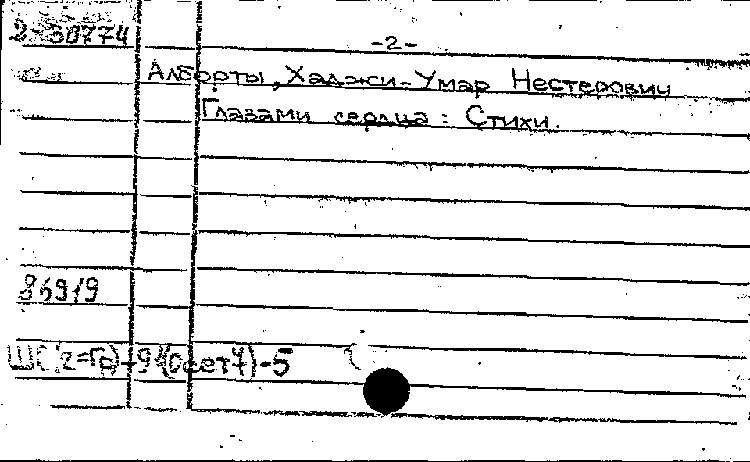 2-30774
-2-
Алборты, Хаджи-Умар Нестерович
Глазами сердца : Стихи.
86919
Ш(2=Гр)-9(Осет4)-5